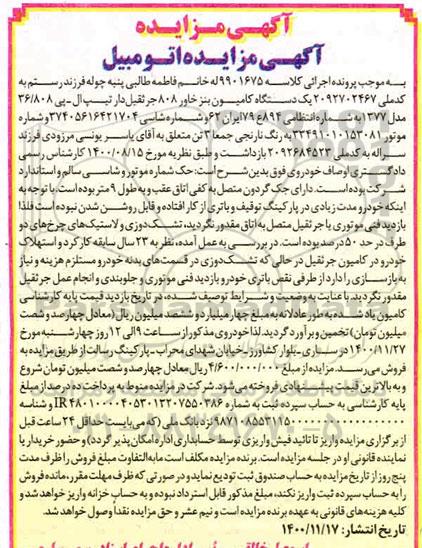 آگهی مزایده
آگهی مزایده اتومبیل
به موجب پرونده اجرائی کلاسه ۹۹۰۱۶۷۵ له خانم فاطمه طالبی پنبه چوله فرزند رستم به
کدملی ۲۰۹۲۷۰۲۴۶۷ یک دستگاه کامیون بنز خاور ۸۰۸ جرثقیل دار تیپ ال-پی ۳۶/۸۰۸
مدل ۱۳۷۷ به شماره انتظامی ۸۹۴ع۷۹ ایران ۶۲ و شماره شاسی ۳۷۴۰۵۶۱۶۴۲۱۷۰۴ و شماره
موتور ۳۳۴۹۱۰۱۰۱۵۳۰۸۱ به رنگ نارنجی جمعا ۳ تن متعلق به آقای یاسر یونسی مرزودی فرزند
سراله به کدملی ۲۰۹۲۶۸۴۵۲۳ بازداشت و طبق نظریه مورخ ۱۴۰۰/۰۸/۱۵ کارشناس رسمی
دادگستری اوصاف خودروی فوق بدین شرح است: حک شماره موتور و شاسی سالم و استاندارد
شرکت بوده است. دارای جک گردون متصل به کفی اتاق عقب و به طول ۹ متر بوده است. با توجه به
اینکه خودرو مدت زیادی در پارکینگ توقیف و باتری از کار افتاده و قابل روشن شدن نبوده است فلذا
بازدید فنی موتوری یا جرثقیل متصل به اتاق مقدور نگردید، تشک دوزی و لاستیک های چرخ های دو
طرف در حد ۵۰ درصد بوده است. در بررسی به عمل آمده، نظر به ۲۳ سال سابقه کارکرد و استهلاک
خودرو در کامیون جرثقیل در حالی که تشک دوزی در قسمت های بدنه خودرو مستلزم هزینه و نیاز
به بازسازی را دارد از طرفی نقص باتری خودرو بازدید فنی موتوری و جلوبندی و انجام عمل جرثقیل
مقدور نگردید. با عنایت به وضعیت و شرایط توصیف شده، در تاریخ بازدید قیمت پایه کارشناسی
کامیون یاد شده به طور عادلانه به مبلغ چهار میلیارد و ششصد میلیون ریال (معادل چهارصد و شصت
میلیون تومان) تخمین و برآورد گردید. لذا خودروی مذکور از ساعت ۹ الی ۱۲ روز چهارشنبه مورخ
۱۴۰۰/۱۱/۲۷ در ساری-بلوار کشاورز-خیابان شهدای محراب-پارکینگ رسالت از طریق مزایده به
فروش می رسد. مزایده از مبلغ ۴/۶۰۰/۰۰۰/۰۰۰ ریال معادل چهارصد و شصت میلیون تومان شروع
و به بالاترین قیمت پیشنهادی فروخته می شود. شرکت در مزایده منوط به پرداخت ده درصد از مبلغ
پایه کارشناسی به حساب سپرده ثبت به شماره IR ۴۸۰۱۰۰۰۰۴۰۵۳۰۱۳۲۰۷۵۵۰۳۸۶ و شناسه
نزد بانک ملی (که می بایست حداقل ۲۴ ساعت قبل
از برگزاری مزایده واریز تا تائید فیش واریزی توسط حسابداری اداره امکان پذیر گردد) و حضور خریدار یا
نماینده قانونی او در جلسه مزایده است. برنده مزایده مکلف است مابه التفاوت مبلغ فروش را ظرف مدت
پنج روز از تاریخ مزایده به حساب صندوق ثبت تودیع نماید و در صورتی که ظرف مهلت مقرر، مانده فروش
را به حساب سپرده ثبت واریز نکند، مبلغ مذکور قابل استرداد نبوده و به حساب خزانه واریز خواهد شد و
کلیه هزینه های قانونی به عهده برنده مزایده است و نیم عشر و حق مزایده نقداً وصول خواهد شد.
تاریخ انتشار: ۱۴۰۰/۱۱/۱۷